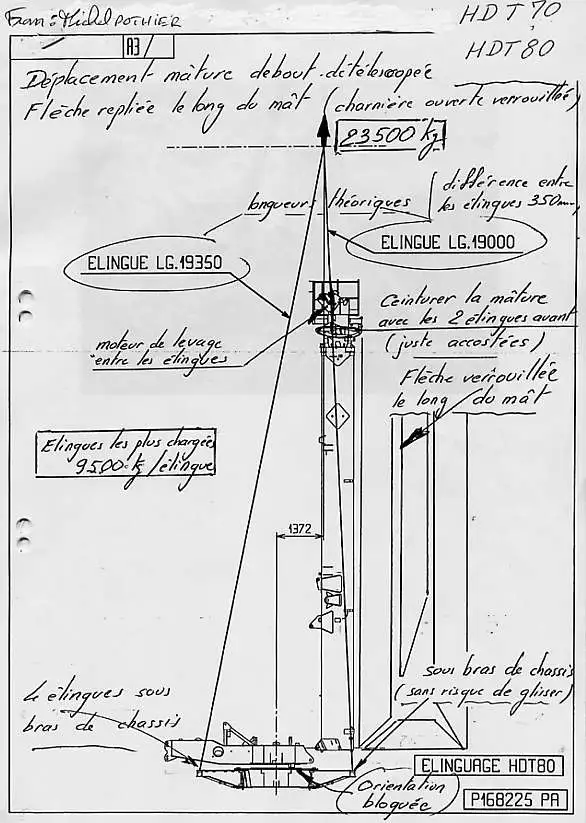 HDT70
A3/
HDT80
Déplacement mâture debout. dételescopée
Flèche repliée le long du mât (charnière ouverte verrouillée)
23500 kg
longueurs théoriques
différence entre
les élingues 350mm
ELINGUE LG.19350
ELINGUE LG.19000
Ceinturer la mâture
avec les 2 élingues avant
(juste accostées)
moteur de levage
entre les élingues
Flèche verrouillée
le long du mât
Elingues les plus chargées
9500 kg/élingue
1372
sous bras de chassis
(sans risque de glisser)
4 élingues sous
bras de chassis
ELINGUAGE HDT80
Orientation
bloquée
P168225 PA